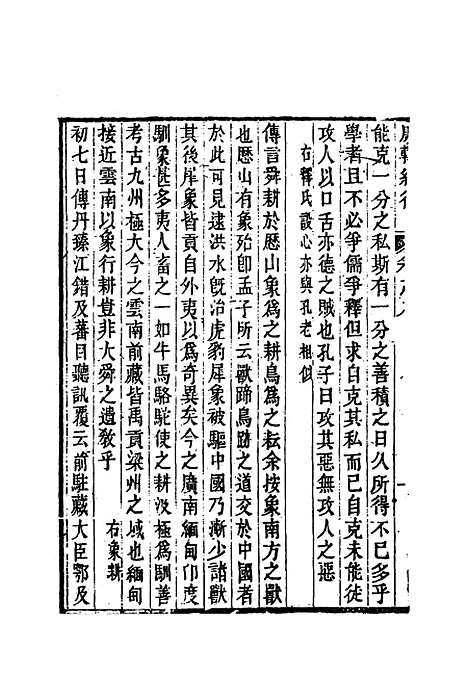 能克一分之私斯有一分之善積之日久所得不已多乎
學者且不必爭儒爭釋但求自克其私而已自克未能徒
攻人以口舌亦德之賊也孔子曰攻其惡無攻人之惡
右釋氏設心亦與孔老相似
傳言舜耕於歷山象為之耕鳥為之耘余按象南方之獸
也歷山有象殆卽孟子所云獸蹄鳥跡之道交於中國者
於此可見逮洪水旣治虎豹犀象被驅中國乃漸少諸獸
其後犀象皆貢自外夷以為奇異矣今之廣南緬甸印度
馴象甚多夷人畜之一如牛馬駱駝使之耕汲極為馴善
考古九州極大今之雲南前藏皆禹貢梁州之域也緬甸
接近雲南以象行耕豈非大舜之遺敎乎
右象耕
初七日傳丹臻江錯及蕃目聽訊覆云前駐藏大臣鄂及